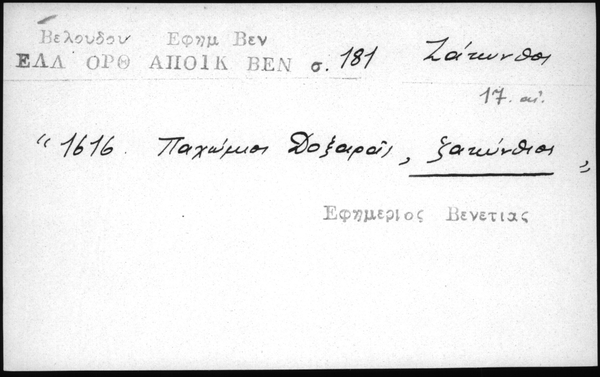 Βελουδου Εφημ Βεν
ΕΛΛ ΟΡΘ ΑΠΟΙΚ ΒΕΝ σ. 181 Ζάκυνθος
17. αἰ.
"1616. Παχώμιος Δοξαρᾶς, ζακύνθιος,
Εφημεριος Βενετιας